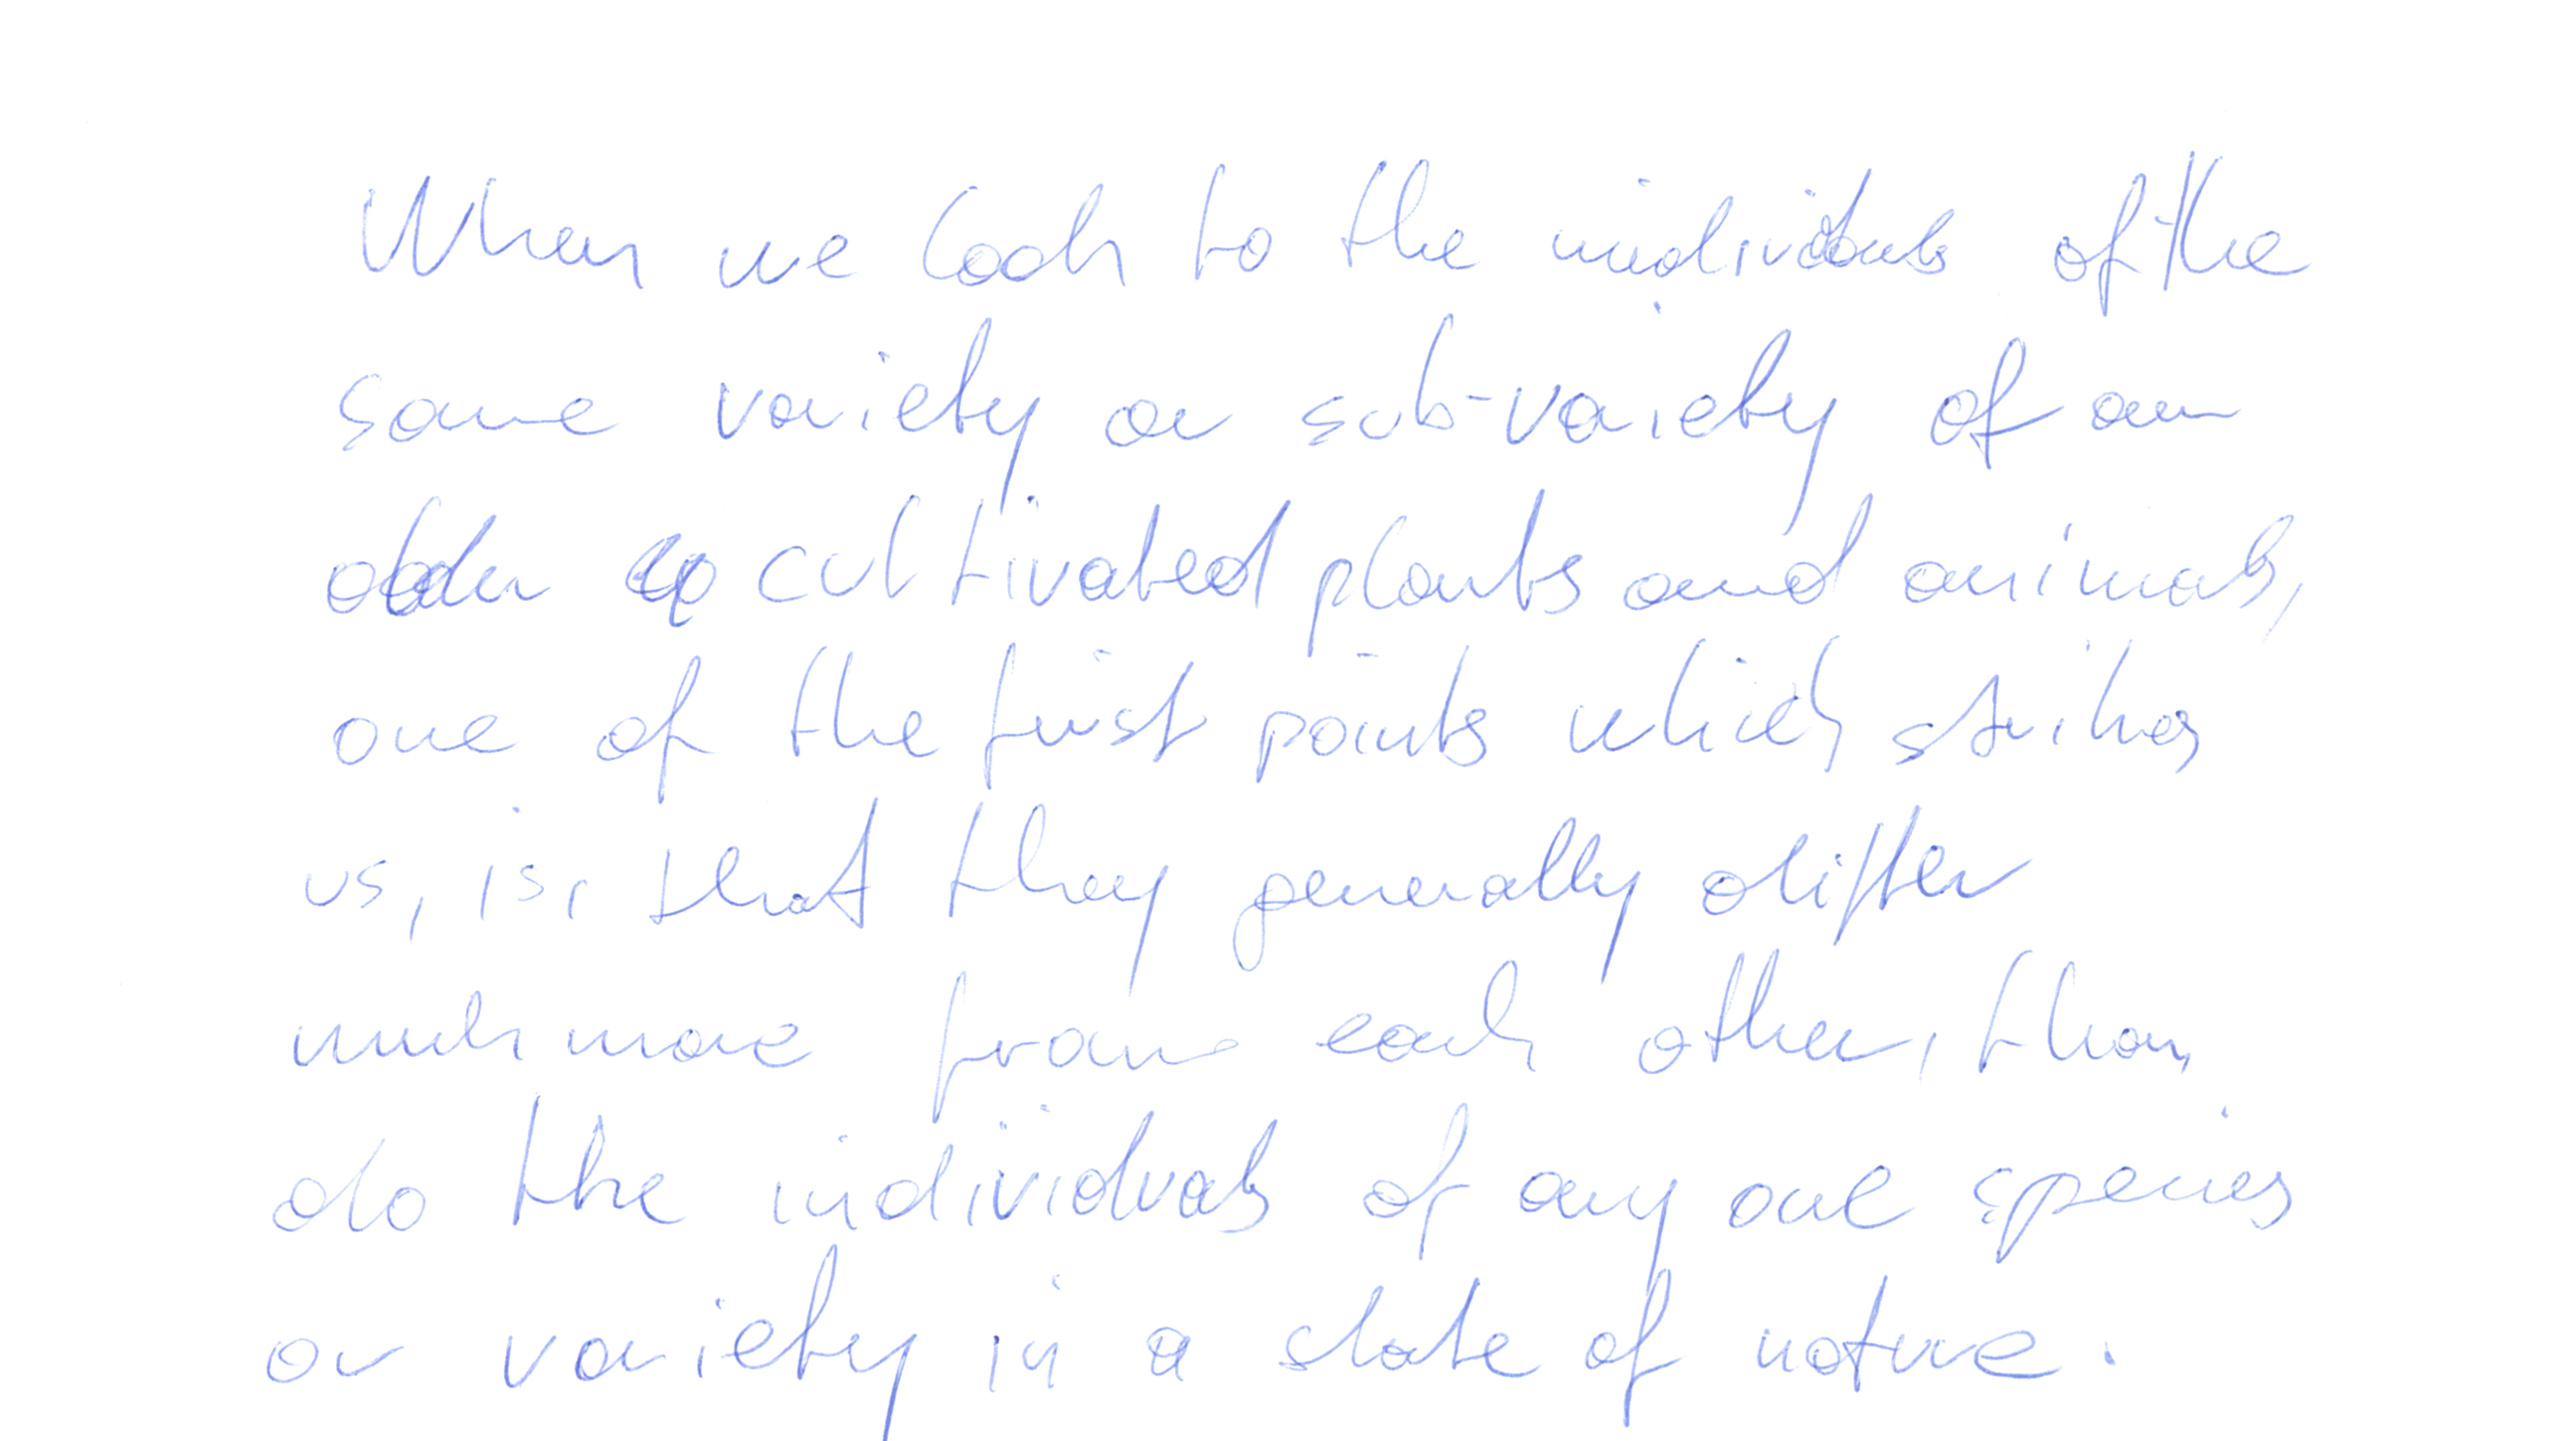 When we look to the individuals of the
same variety or sub-variety of our
older cultivated plants and animals,
one of the first points which strikes
us, is, that they generally differ
much more from each other, than
do the individuals of any one species
or variety in a state of nature.